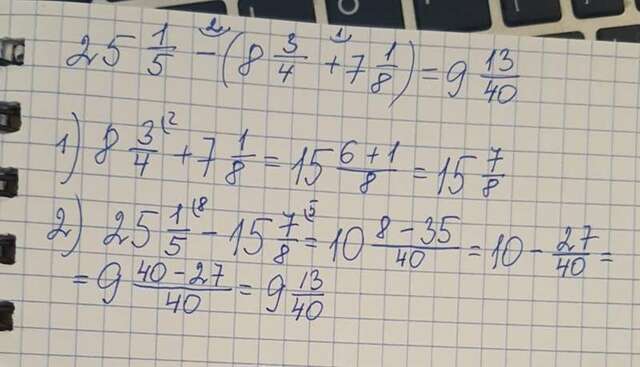 25 1/5 - (8 3/4 + 7 1/8) = 9 13/40
1) 8 3/4 + 7 1/8 = 15 (6+1)/8 = 15 7/8
2) 25 1/5 - 15 7/8 = 10 (8-35)/40 = 10 - 27/40 =
= 9 (40-27)/40 = 9 13/40